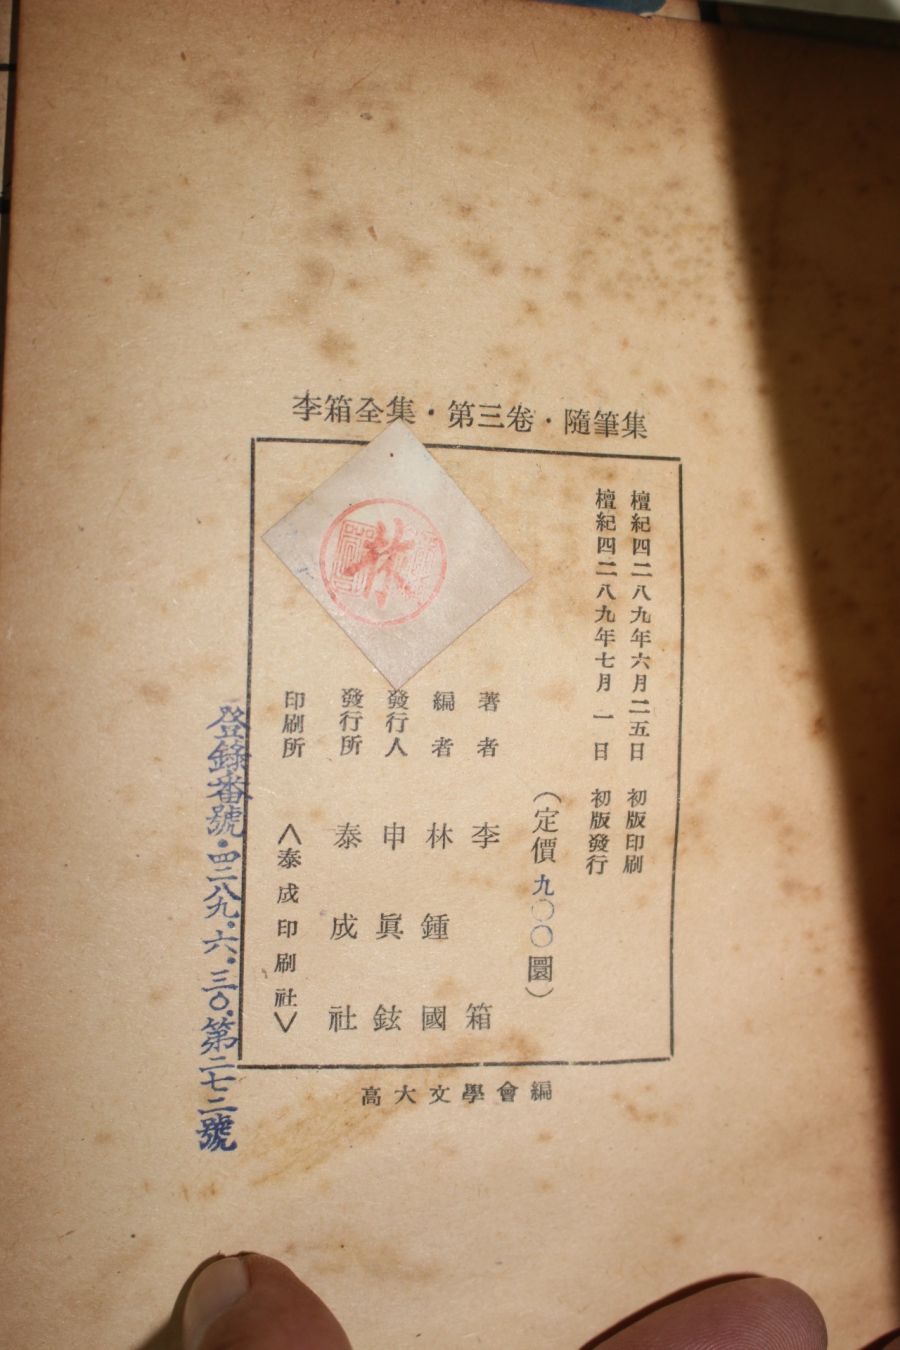 李箱全集·第三卷·隨筆集
檀紀四二八九年六月二五日 初版印刷
檀紀四二八九年七月 一日 初版發行
(定價九〇〇圜)
著者 李箱
編者 林鍾國
發行人 申眞鉉
發行所 泰成社
印刷所 〈泰成印刷社〉
林
高大文學會編
登錄番號·四二八九.六.三〇.第二七二號